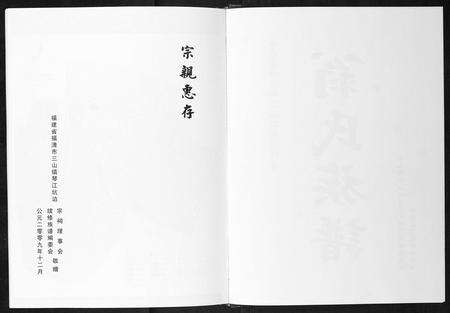 宗親惠存
福建省福清市三山镇琴江坑边
宗祠理事会
续修族谱编委会
敬赠
公元二零零九年十二月
翁氏族譜